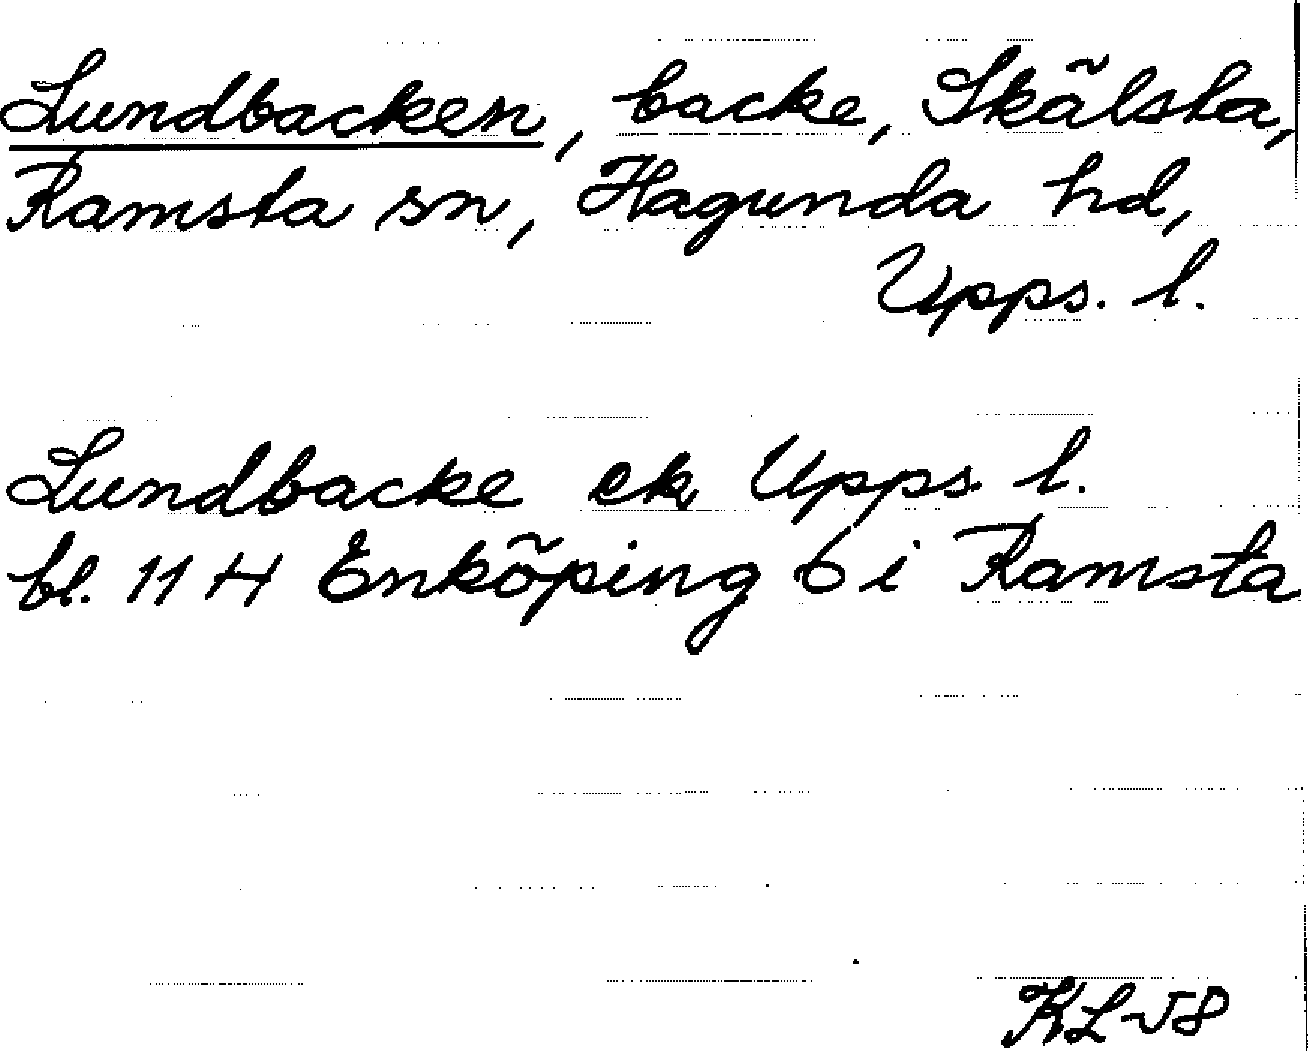 Lundbacken, backe, Skälsta,
Ramsta sn, Hagunda hd,
Upps. l.
Lundbacke ek Upps l.
bl. 11 H Enköping 6 i Ramsta
KL-58